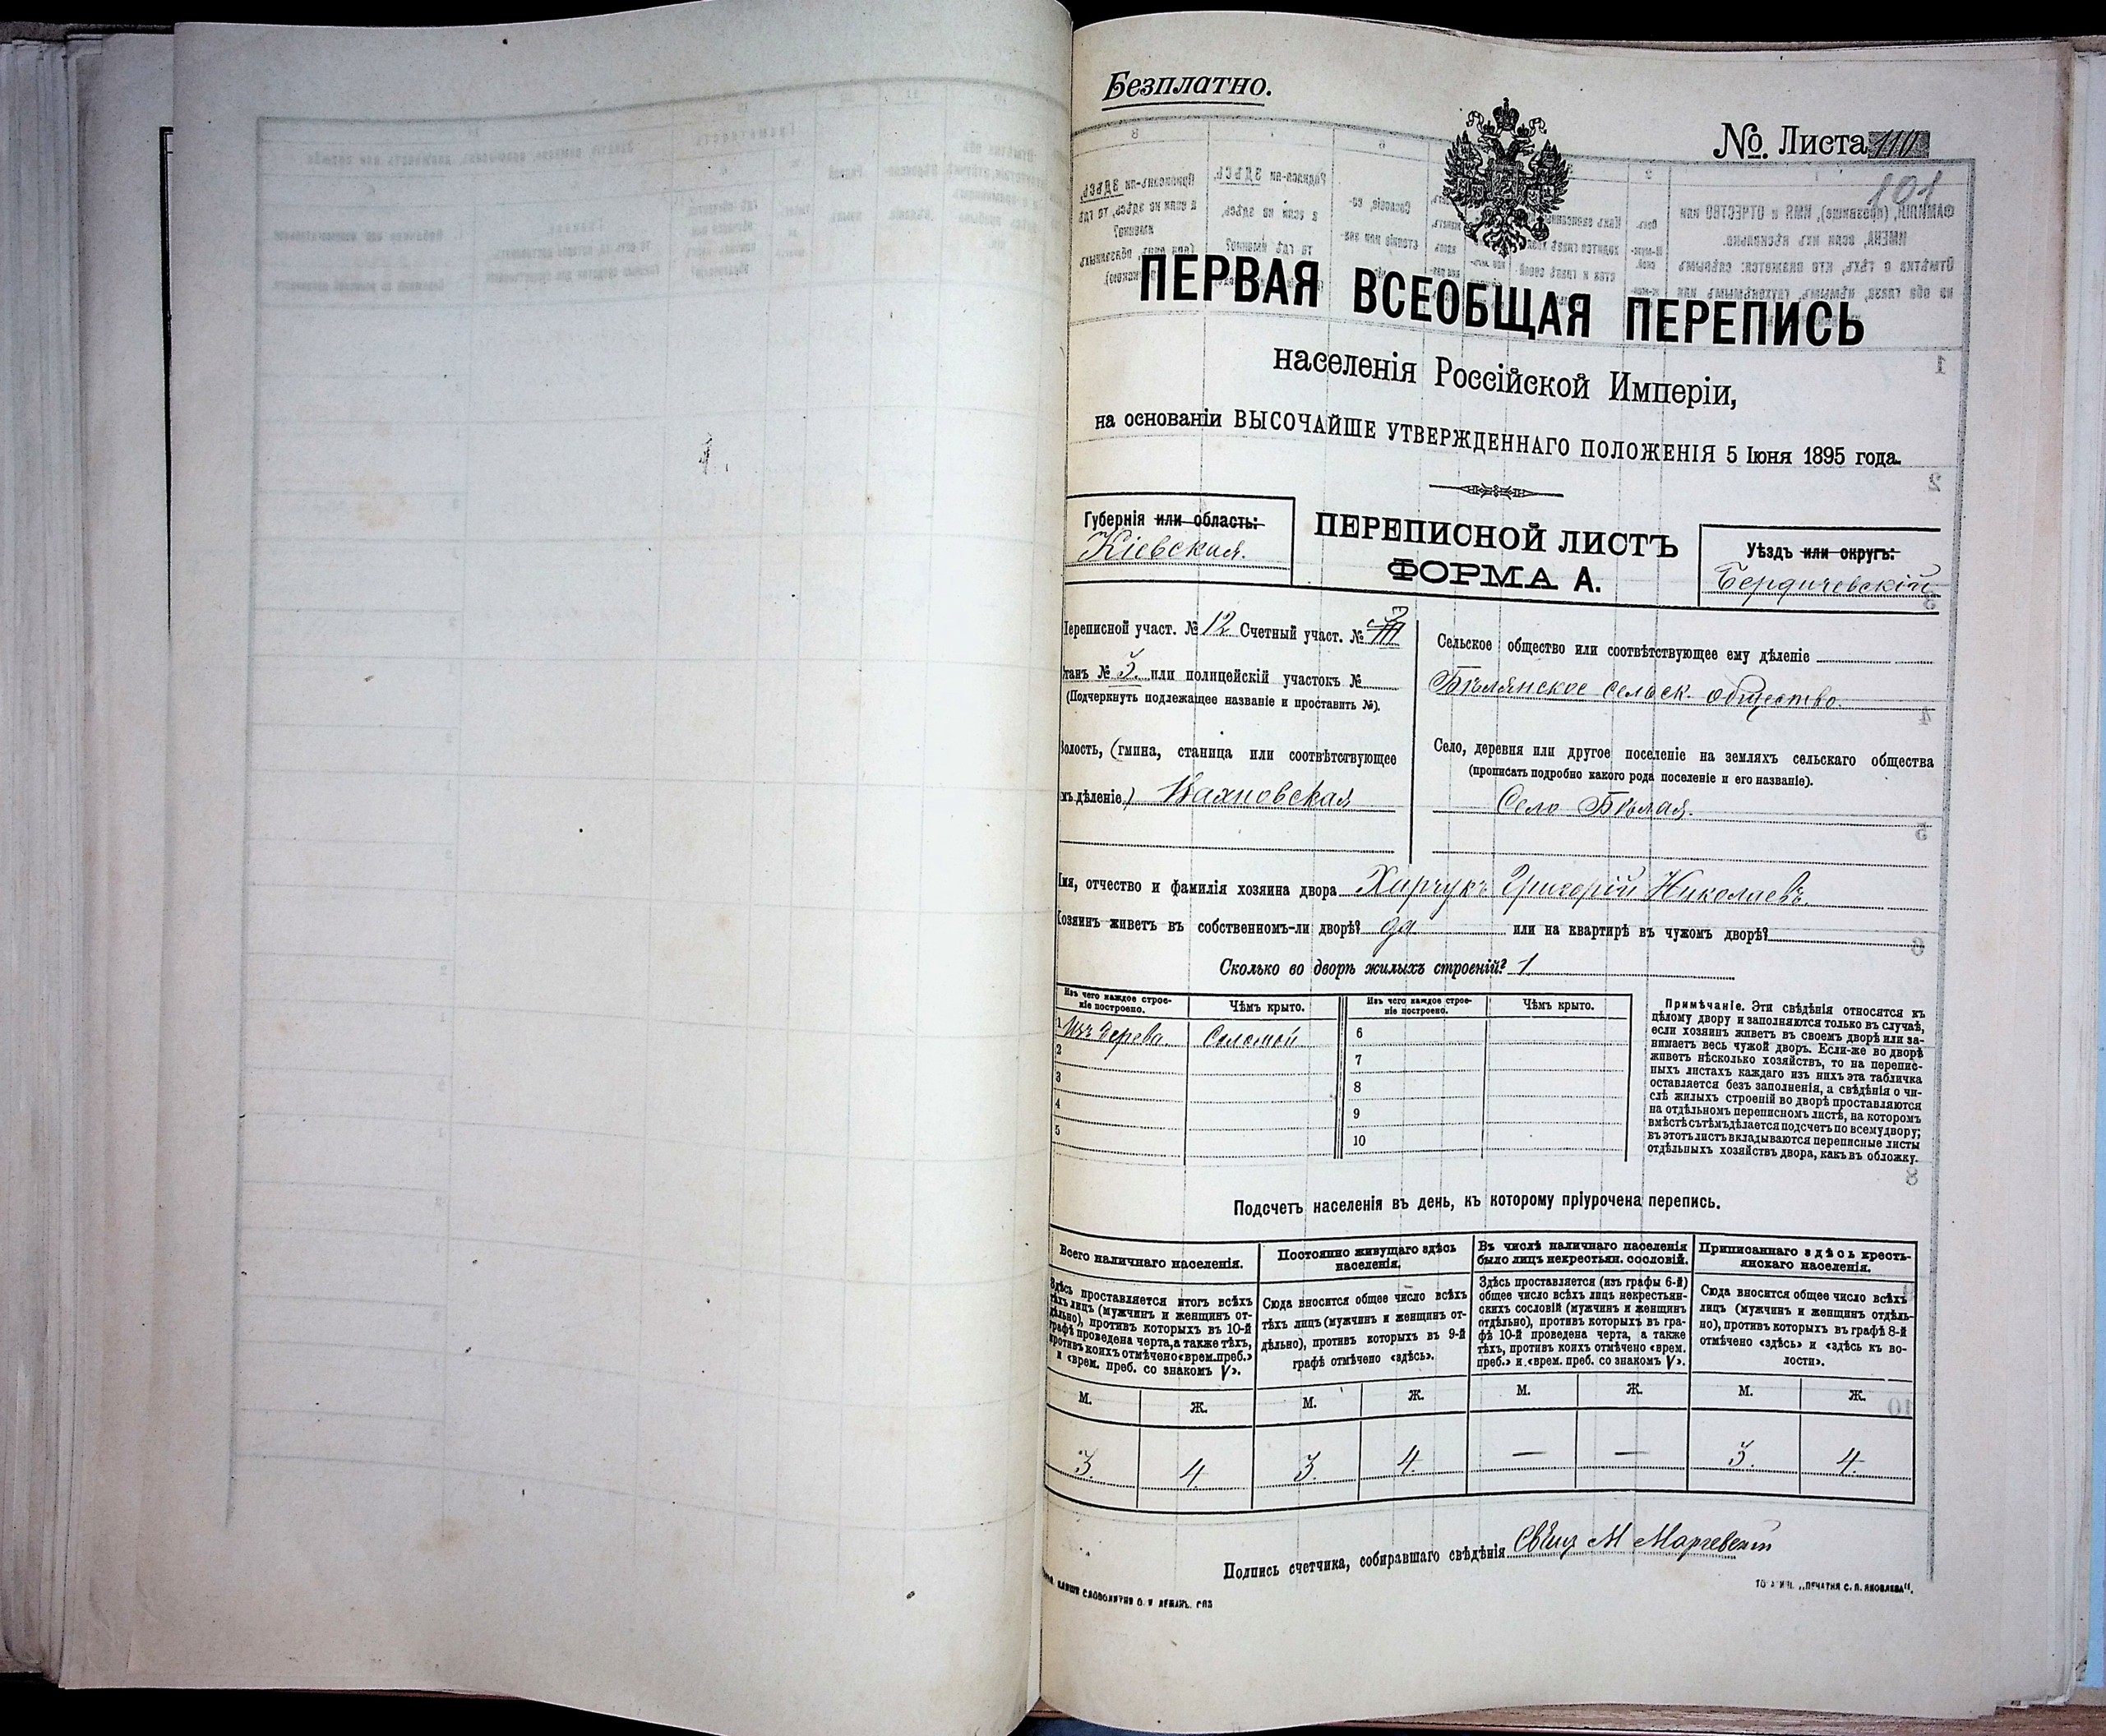 Безплатно.
№. Листа 110
101
ПЕРВАЯ ВСЕОБЩАЯ ПЕРЕПИСЬ
населенія Россійской Имперіи,
на основаніи ВЫСОЧАЙШЕ УТВЕРЖДЕННАГО ПОЛОЖЕНІЯ 5 Іюня 1895 года.
Губернія или область:
Кіевская.
ПЕРЕПИСНОЙ ЛИСТЪ
ФОРМА А.
Уѣздъ или округъ:
Бердичевскій
Переписной участ. № 12 Счетный участ. №
Станъ № 3. или полицейскій участокъ №
(Подчеркнуть подлежащее названіе и проставить №).
Волость, (гмина, станица или соотвѣтствующее
имъ дѣленіе.) Вахновская
Сельское общество или соотвѣтствующее ему дѣленіе
Бѣлянское сельск. общество.
Село, деревня или другое поселеніе на земляхъ сельскаго общества
(прописать подробно какого рода поселеніе и его названіе).
Село Бѣлая.
Имя, отчество и фамилія хозяина двора Харчукъ Григорій Николаевъ.
Хозяинъ живетъ въ собственномъ-ли дворѣ? да или на квартирѣ въ чужомъ дворѣ?
Сколько во дворѣ жилыхъ строеній? 1
Изъ чего каждое строе-
ніе построено.
Чѣмъ крыто.
Изъ чего каждое строе-
ніе построено.
Чѣмъ крыто.
1 Изъ дерева. Соломой 6
2 7
3 8
4 9
5 10
Примѣчаніе. Эти свѣдѣнія относятся къ
цѣлому двору и заполняются только въ случаѣ,
если хозяинъ живетъ въ своемъ дворѣ или за-
нимаетъ весь чужой дворъ. Если-же во дворѣ
живетъ нѣсколько хозяйствъ, то на перепис-
ныхъ листахъ каждаго изъ нихъ эта табличка
оставляется безъ заполненія, а свѣдѣнія о чи-
слѣ жилыхъ строеній во дворѣ проставляются
на отдѣльномъ переписномъ листѣ, на которомъ
вмѣстѣ съ тѣмъ дѣлается подсчетъ по всему двору;
въ этотъ листъ вкладываются переписные листы
отдѣльныхъ хозяйствъ двора, какъ въ обложку.
Подсчетъ населенія въ день, къ которому пріурочена перепись.
Всего наличнаго населенія.
Здѣсь проставляется итогъ всѣхъ
тѣхъ лицъ (мужчинъ и женщинъ от-
дѣльно), противъ которыхъ въ 10-й
графѣ проведена черта, а также тѣхъ,
противъ коихъ отмѣчено «врем. преб.»
и «врем. преб. со знакомъ V».
Постоянно живущаго здѣсь
населенія.
Сюда вносится общее число всѣхъ
тѣхъ лицъ (мужчинъ и женщинъ от-
дѣльно), противъ которыхъ въ 9-й
графѣ отмѣчено «здѣсь».
Въ числѣ наличнаго населенія
было лицъ некрестьян. сословій.
Здѣсь проставляется (изъ графы 6-й)
общее число всѣхъ лицъ некрестьян-
скихъ сословій (мужчинъ и женщинъ
отдѣльно), противъ которыхъ въ гра-
фѣ 10-й проведена черта, а также
тѣхъ, противъ коихъ отмѣчено «врем.
преб.» и «врем. преб. со знакомъ V».
Приписаннаго здѣсь кресть-
янскаго населенія.
Сюда вносится общее число всѣхъ
лицъ (мужчинъ и женщинъ отдѣль-
но), противъ которыхъ въ графѣ 8-й
отмѣчено «здѣсь» и «здѣсь къ во-
лости».
М. Ж. М. Ж. М. Ж. М. Ж.
3. 4. 3. 4. — — 3. 4.
Подпись счетчика, собиравшаго свѣдѣнія
"ПЕЧАТНЯ С. П. ЯКОВЛЕВА".